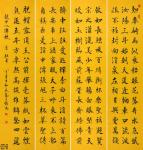 知章騎馬似乘船眼花落井水底眠
汝陽三斗始朝天道逢麴車口流涎
恨不移封向酒泉左相日興費萬錢
飲如長鯨吸百川銜杯樂聖稱避賢
宗之瀟灑美少年舉觴白眼望青天
皎如玉樹臨風前蘇晉長齋繡佛前
醉中往往愛逃禪李白一斗詩百篇
長安市上酒家眠天子呼來不上船
自稱臣是酒中仙張旭三杯草聖傳
脫帽露頂王公前揮毫落紙如雲煙
焦遂五斗方卓然高談雄辯驚四筵
飲中八仙歌